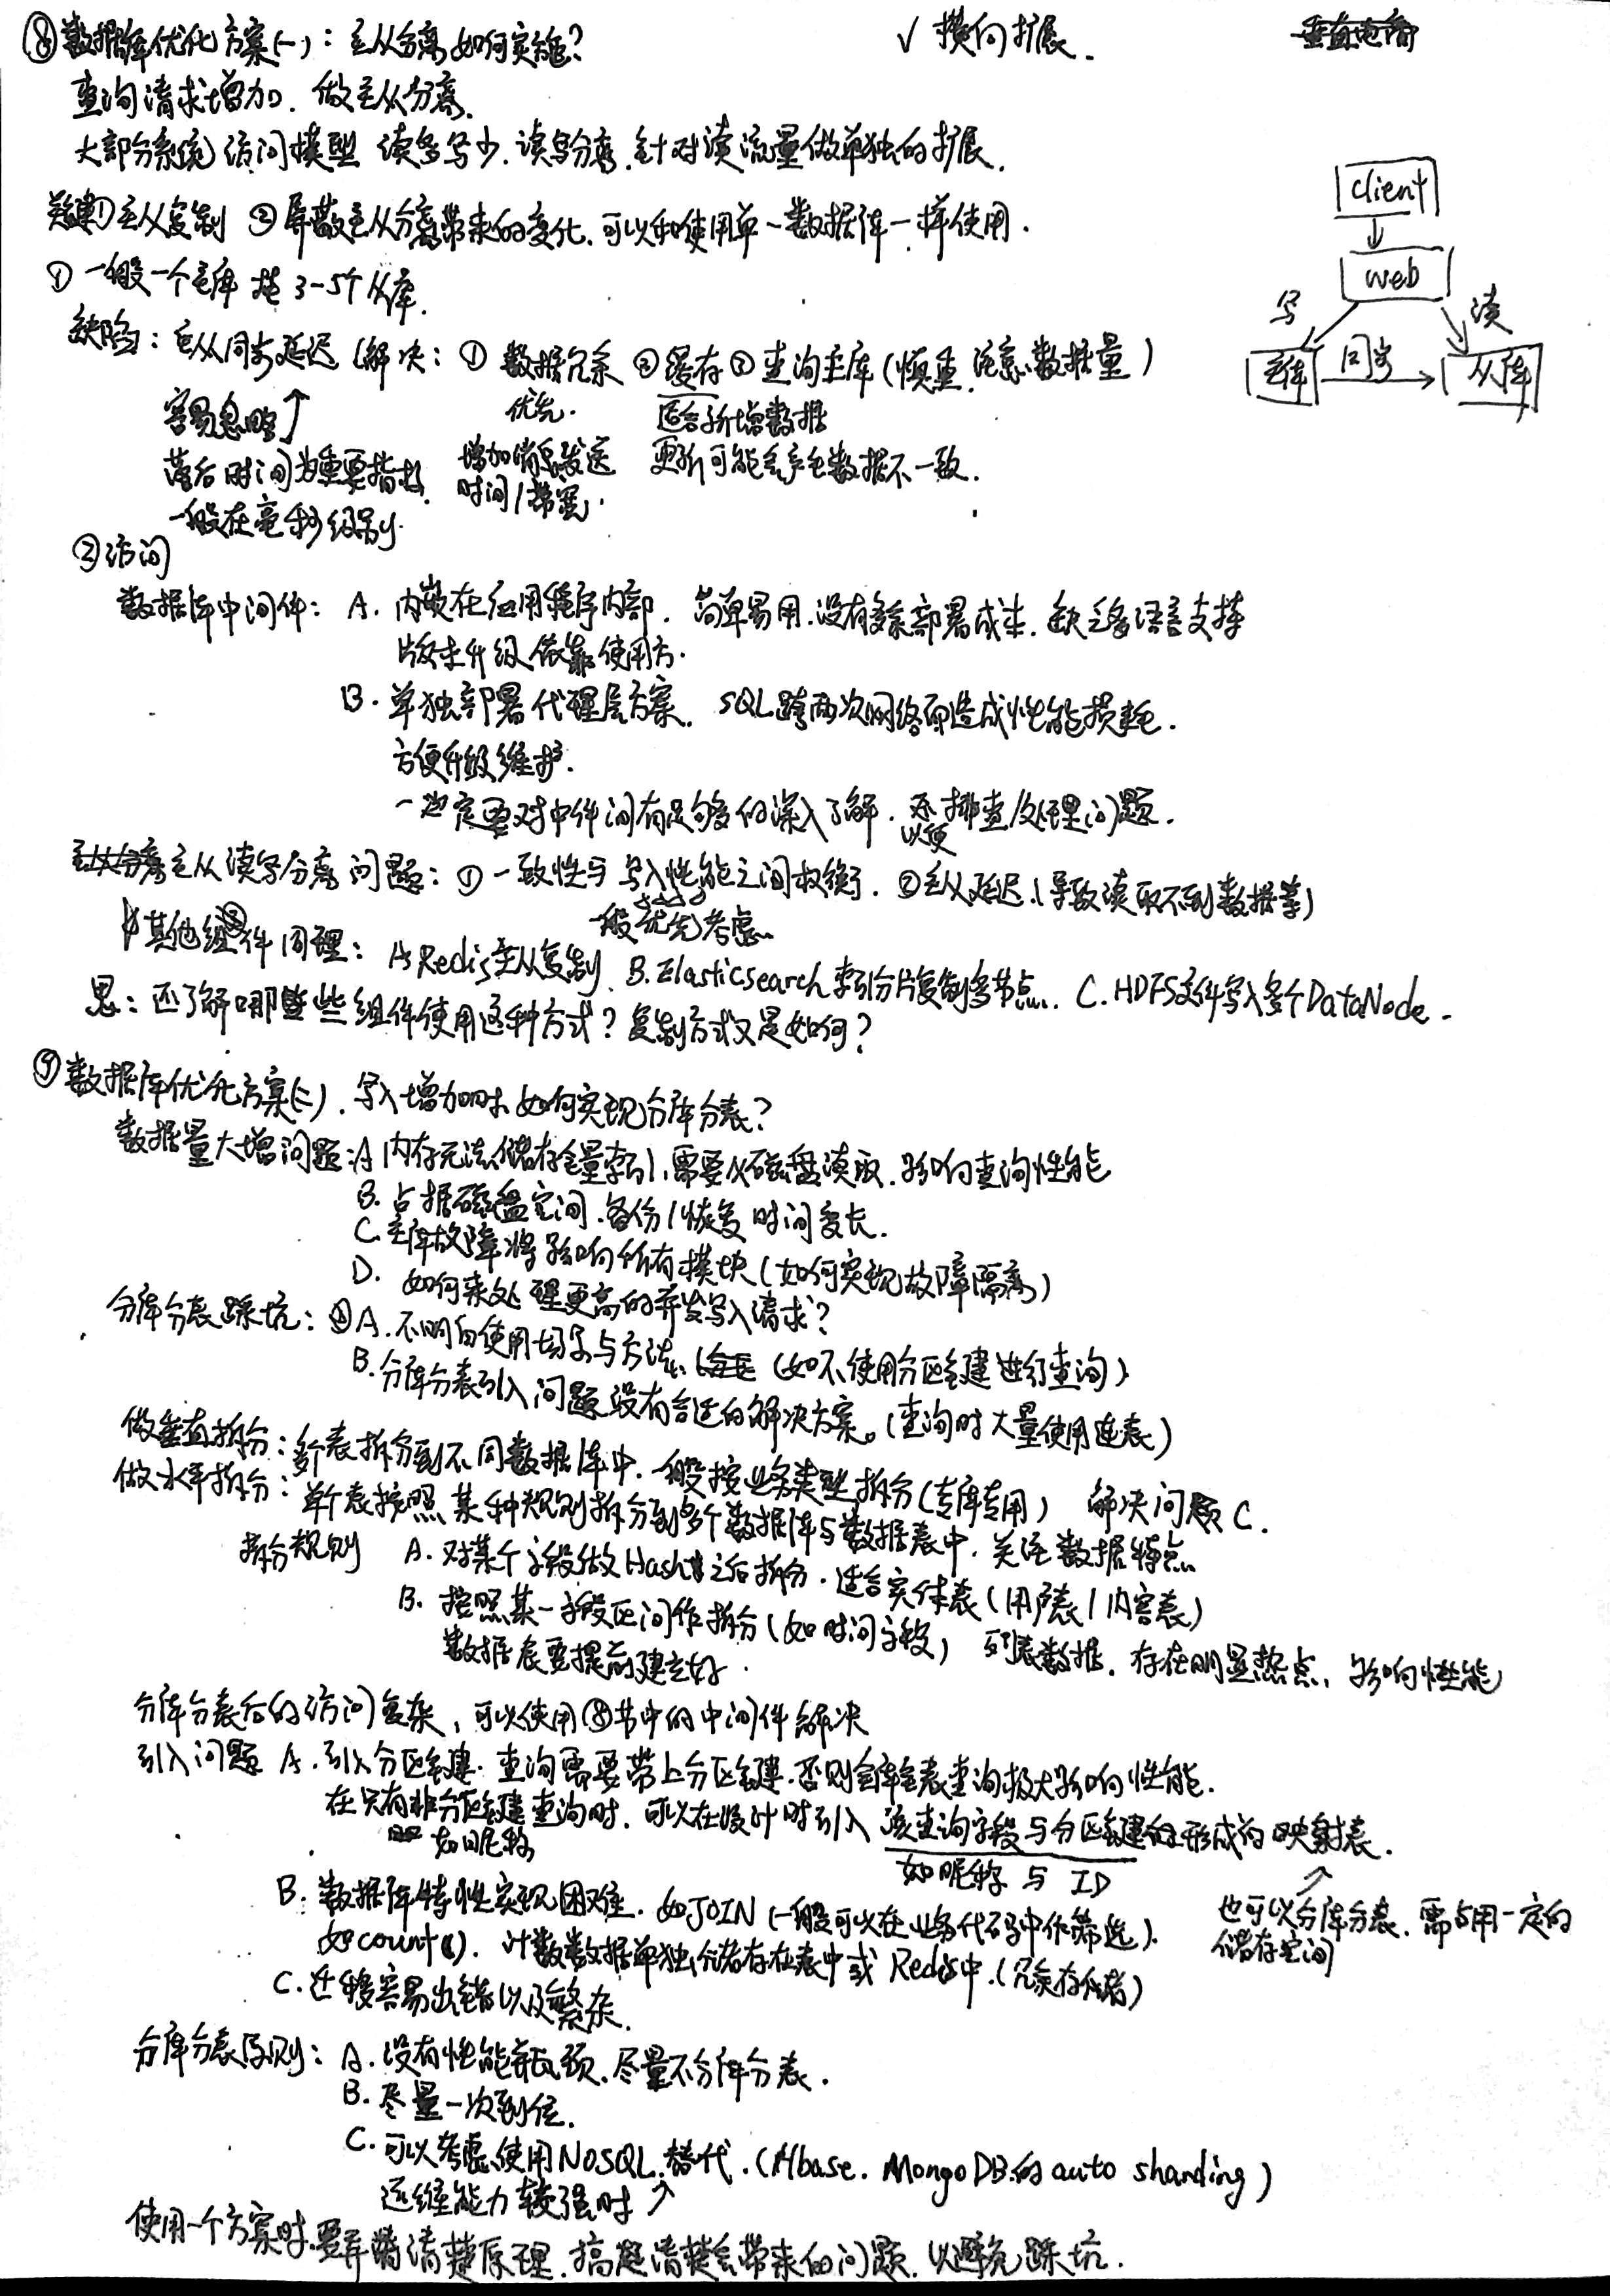 ⑧数据库优化方案(一):主从分离如何实施?
√ 横向扩展.
查询请求增加. 做主从分离.
大部分系统访问模型 读多写少. 读写分离. 针对读流量做单独的扩展.
关键①主从复制 ②屏蔽主从分离带来的变化. 可以和使用单一数据库一样使用.
client
web
写 读
主库 同步 从库
① 一般一个主库 挂 3-5个从库.
缺陷:主从同步延迟(解决:① 数据冗余 ②缓存 ③查询主库(慎重.注意数据量)
容易忽略 优先. 适合新增数据
落后时间为重要指标. 增加消息发送 更新可能会产生数据不一致.
一般在毫秒级别. 时间/带宽.
②访问
数据库中间件: A. 内嵌在应用程序内部. 简单易用.没有多余部署成本. 缺乏多语言支持
版本升级依靠使用方.
B. 单独部署代理层方案. SQL跨两次网络而造成性能损耗.
方便升级维护.
一定要对中件间有足够的深入了解. 以便排查/处理问题.
主从读写分离问题:①一致性与写入性能之间权衡. ②主从延迟.(导致读取不到数据等)
一般优先考虑
其他组件同理: A.Redis主从复制. B.Elasticsearch索引分片复制多节点. C.HDFS文件写入多个DataNode.
思:还了解哪些组件使用这种方式?复制方式又是如何?
⑨数据库优化方案(二). 写入增加时如何实现分库分表?
数据量大增问题:A 内存无法储存全量索引,需要从磁盘读取.影响查询性能
B. 占据磁盘空间.备份/恢复时间变长.
C.主库故障将影响所有模块(如何实现故障隔离)
D. 如何来处理更高的并发写入请求?
分库分表踩坑: A.不明白使用场景与方法. (如不使用分区键进行查询)
B.分库分表引入问题没有合适的解决方案。(查询时大量使用连表)
做垂直拆分:多个表拆分到不同数据库中. 一般按业务类型拆分(专库专用) 解决问题C.
做水平拆分:单个表按照某种规则拆分到多个数据库与数据表中. 关注数据特点
拆分规则 A. 对某个字段做Hash之后拆分. 适合实体表(用户表/内容表)
B. 按照某一字段区间作拆分(如时间字段) 列表数据. 存在明显热点、影响性能
数据表要提前建立好.
分库分表后的访问复杂,可以使用⑧节中的中间件解决
引入问题 A. 引入分区键. 查询需要带上分区键.否则全库全表查询极大影响性能.
在只有非分区键查询时. 可以在设计时引入 该查询字段与分区键形成的映射表.
如昵称 如昵称 与 ID
也可以分库分表. 需占用一定的
储存空间
B. 数据库特性实现困难. 如JOIN(一般可以在业务代码中作筛选).
如count(). 计数数据单独储存在表中或Redis中.(冗余存储)
C.迁移容易出错以及繁杂.
分库分表原则: A.没有性能瓶颈.尽量不分库分表.
B.尽量一次到位.
C.可以考虑使用NoSQL.替代.(Hbase. MongoDB的auto sharding)
运维能力较强时
使用一个方案时.要弄清楚原理.搞清楚会带来的问题.以避免踩坑.